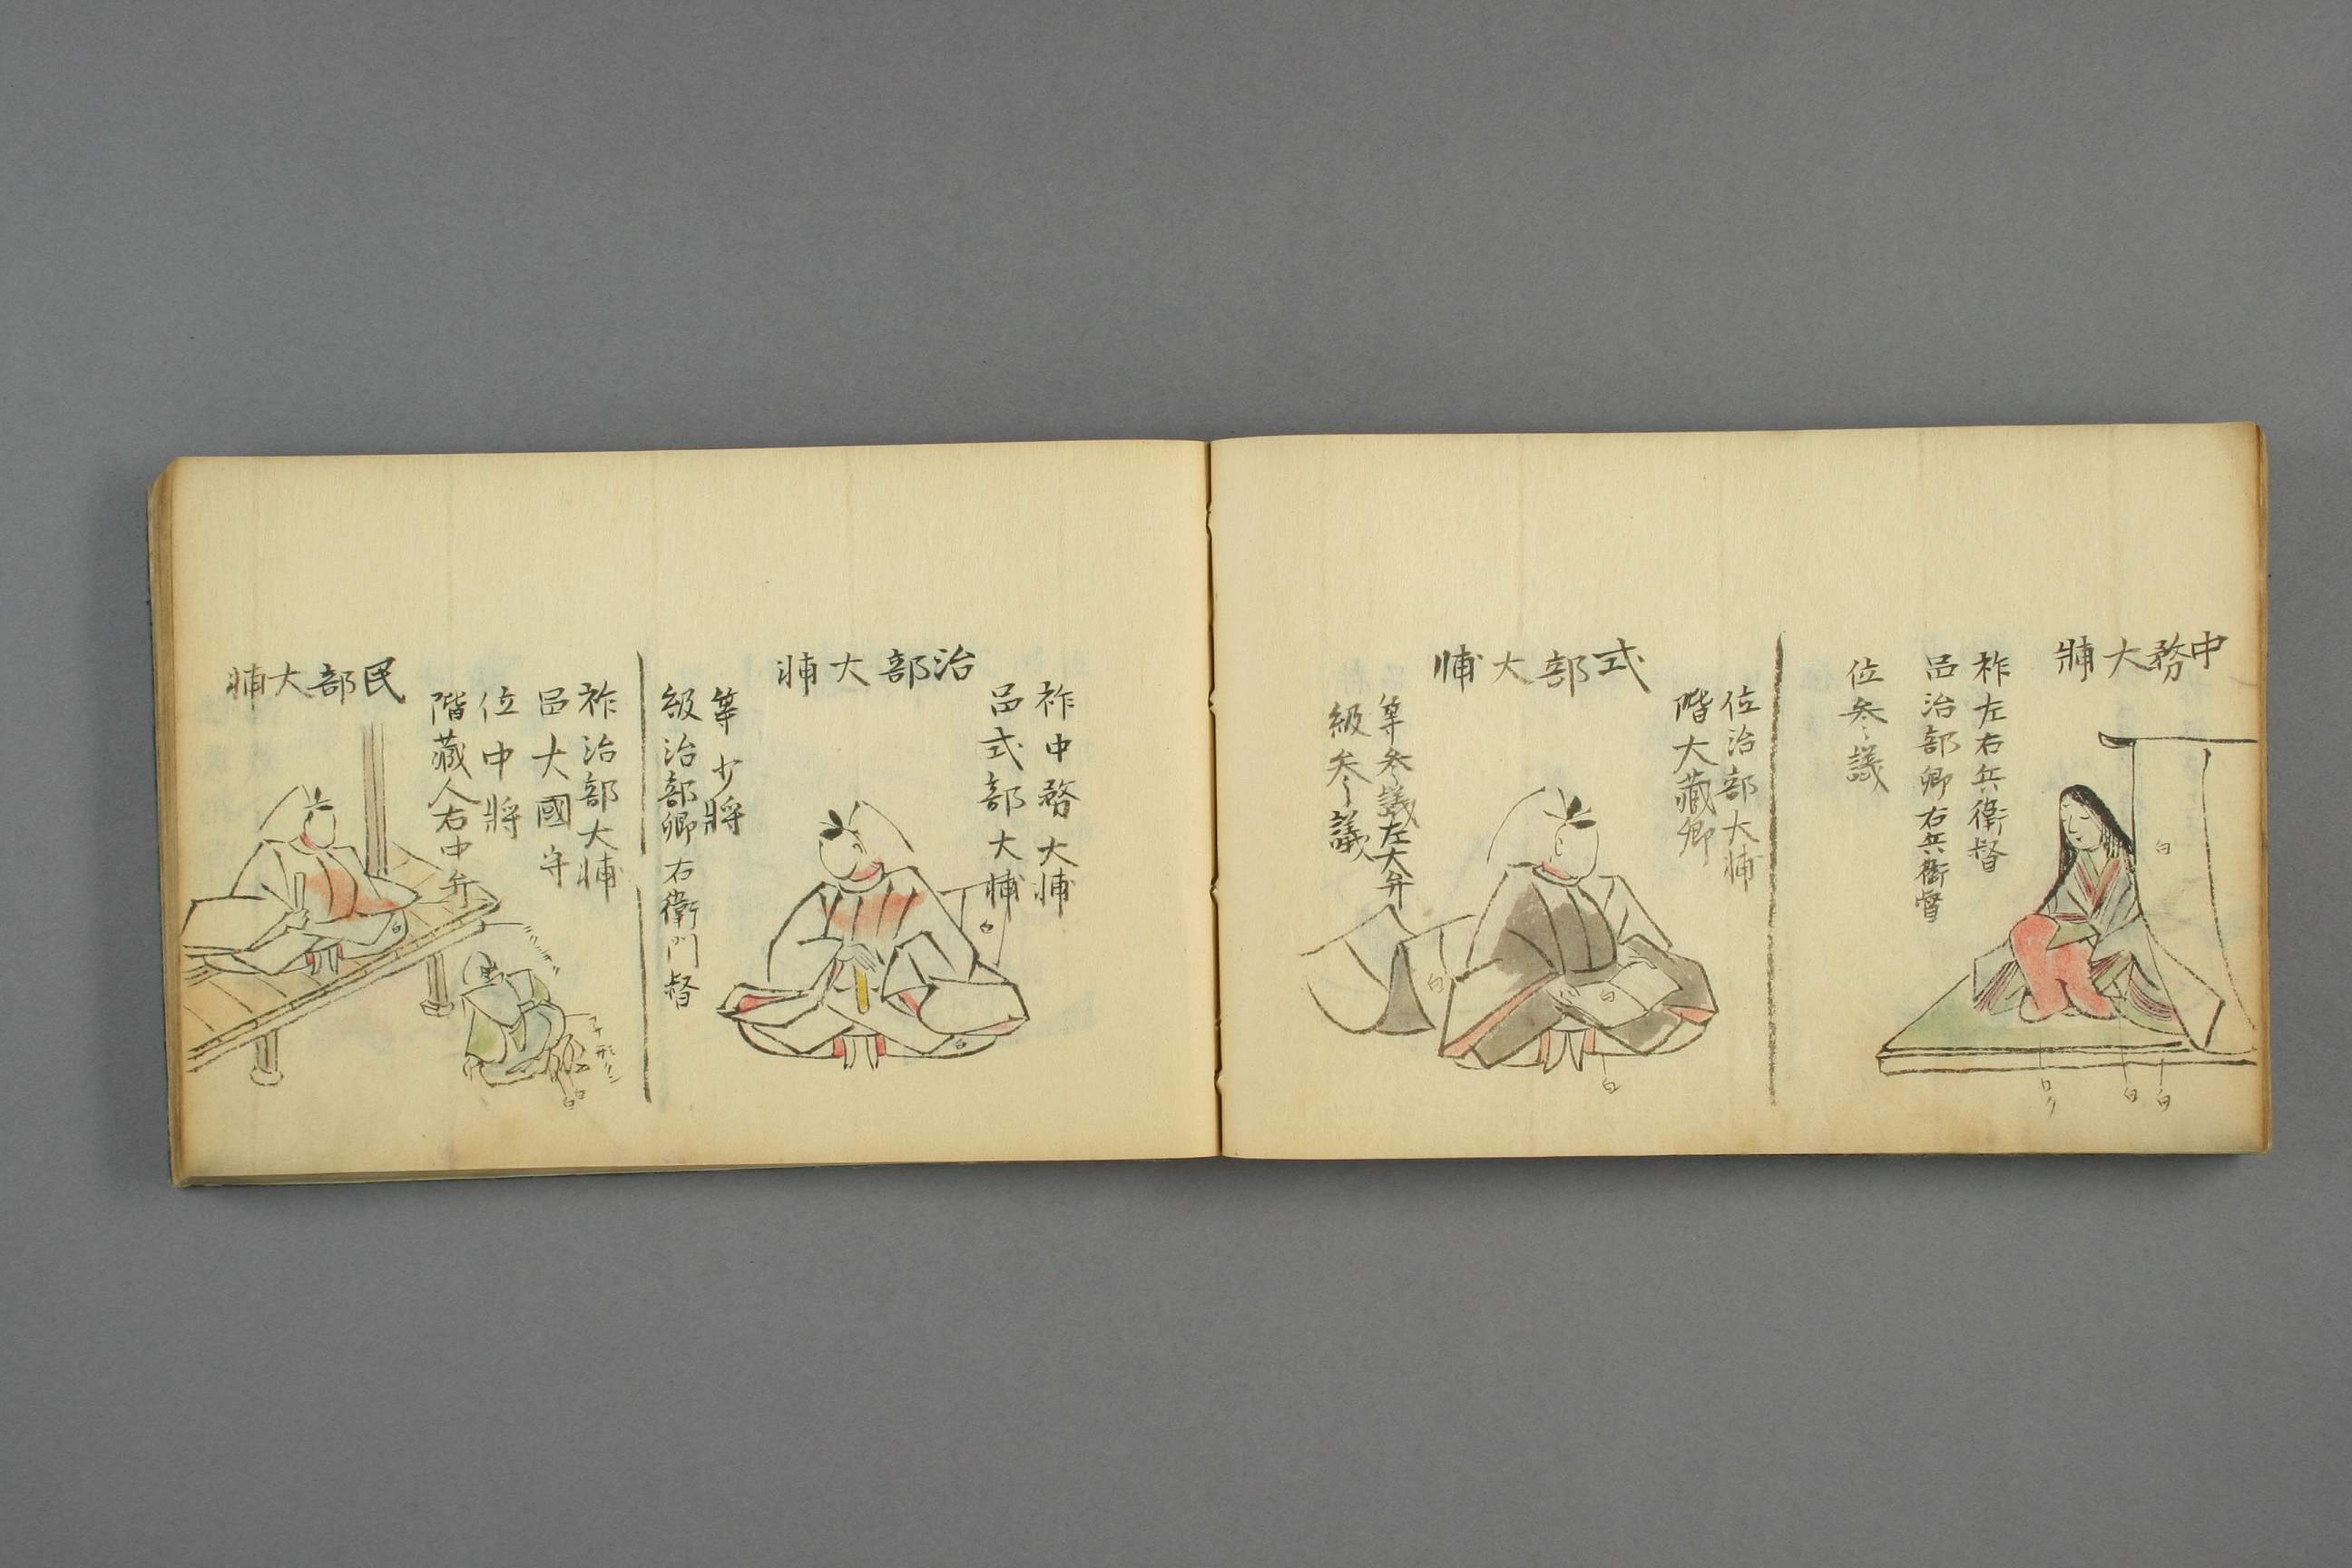 中務大輔
祚左右兵衛督
邑治部卿右兵衛督
位参議
白
白
白
白
式部大輔
位治部大輔
階大藏卿
等参議左大弁
級参議
白
白
白
治部大輔
祚中務大輔
邑式部大輔
等少將
級治部卿右衛門督
白
白
民部大輔
祚治部大輔
邑大國守
位中將
階藏人右中弁
白
白
白